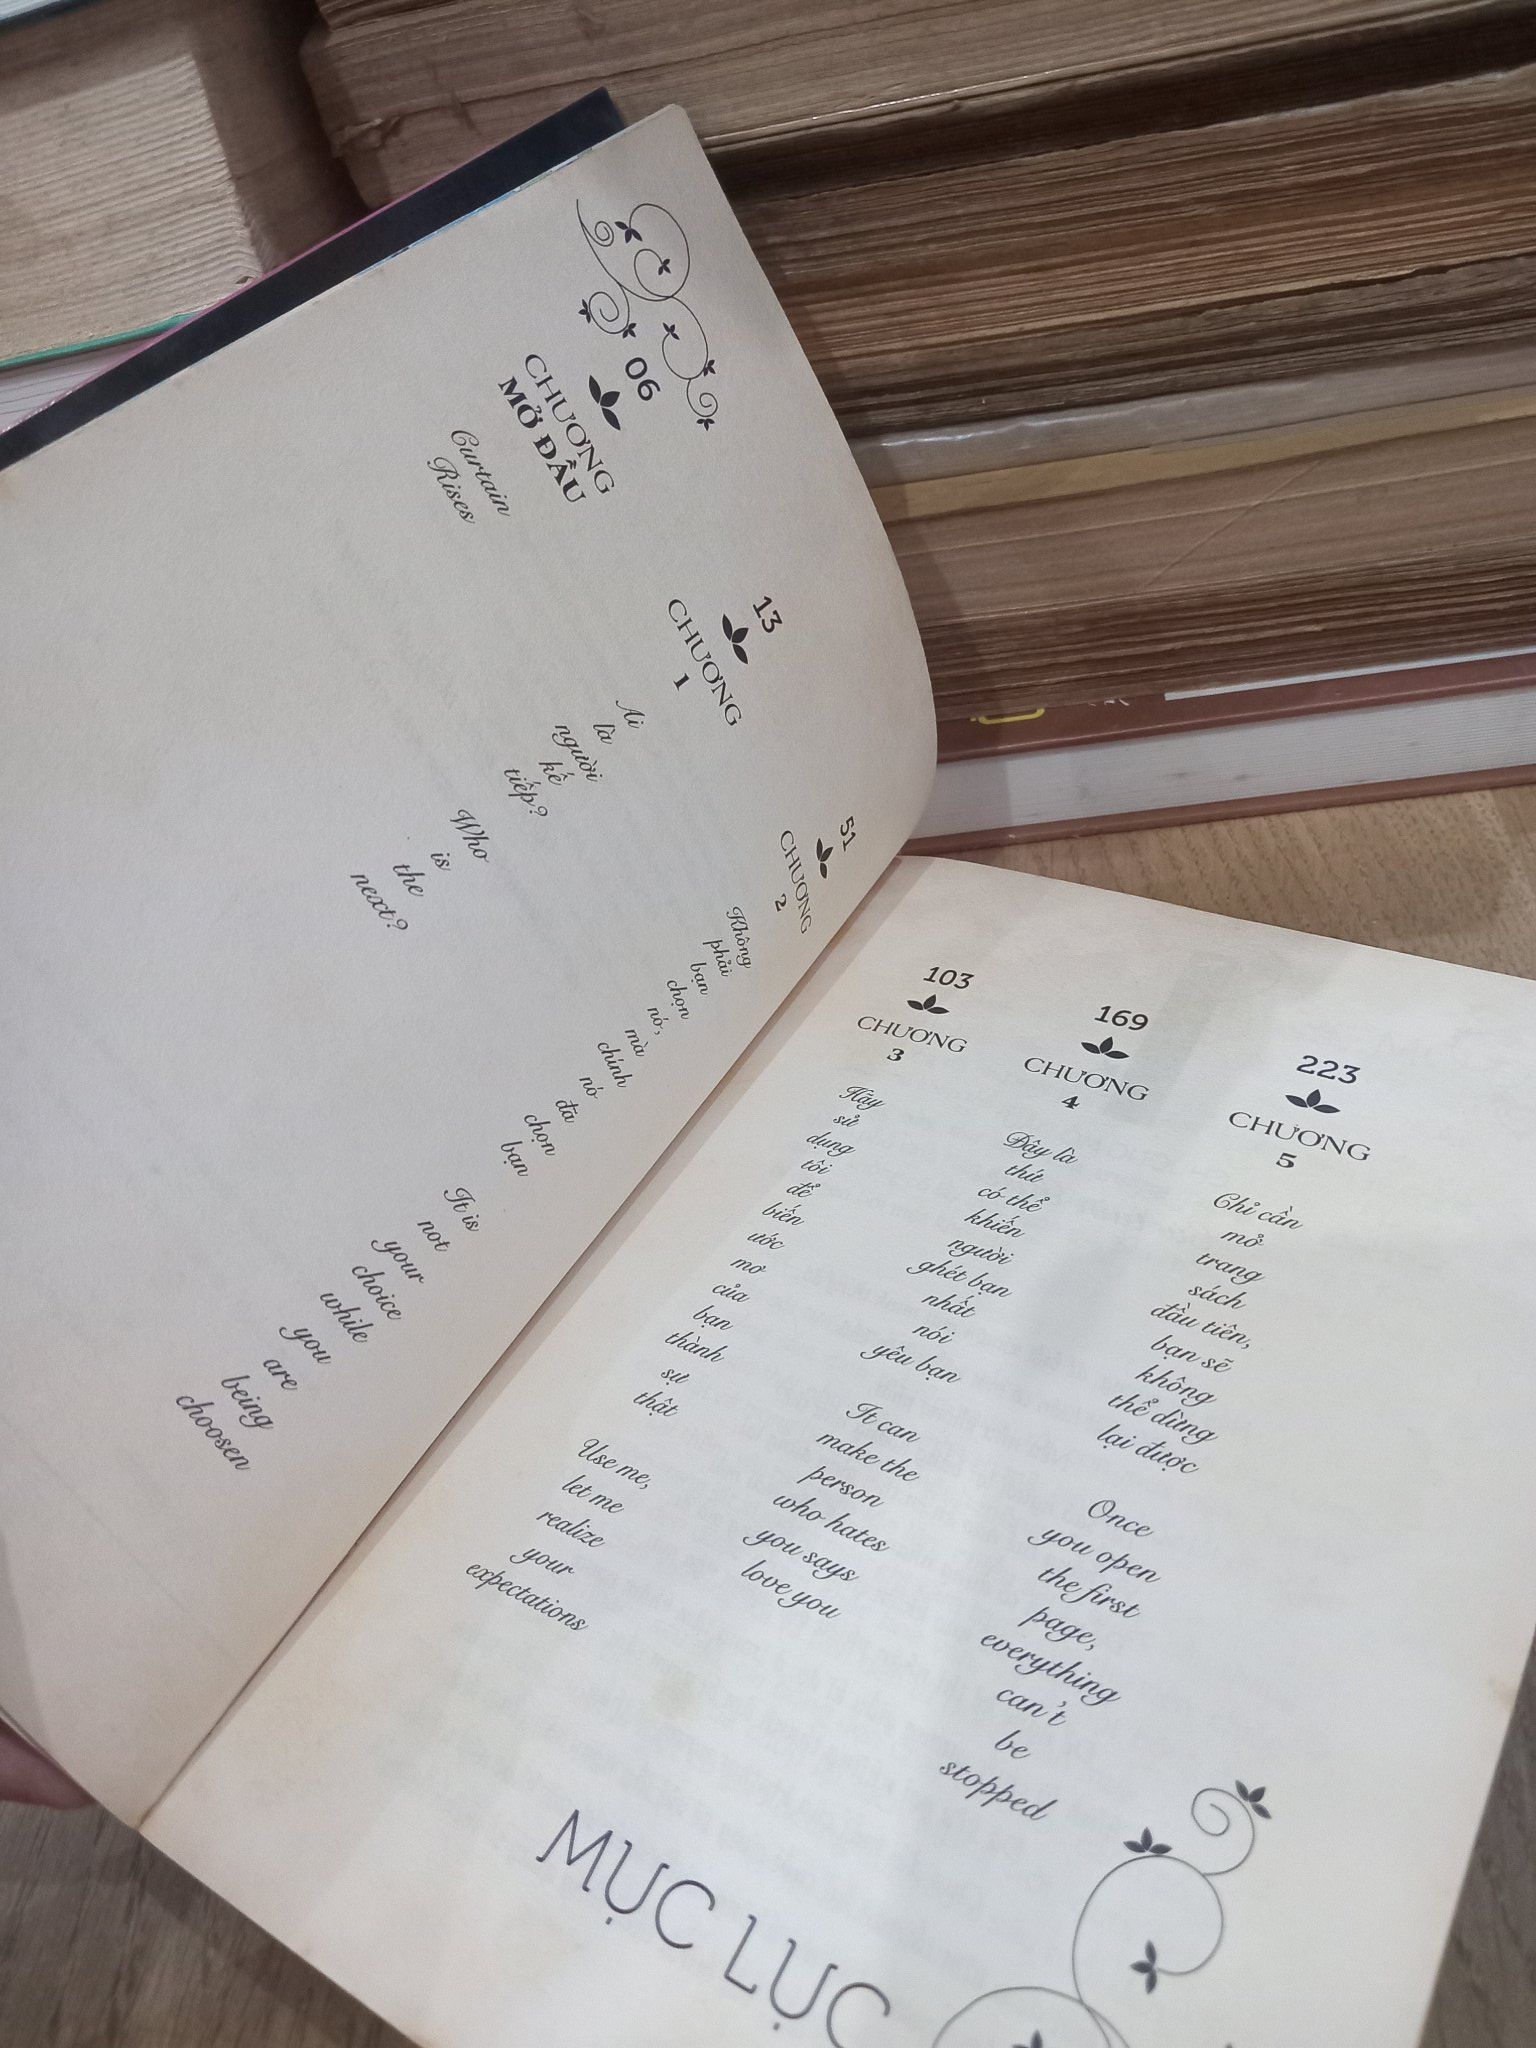 06
CHƯƠNG
MỞ ĐẦU
Curtain
Rises
13
CHƯƠNG
1
Ai
là
người
kế
tiếp?
Who
is
the
next?
51
CHƯƠNG
2
Không
phải
bạn
chọn
nó,
mà
chính
nó
đã
chọn
bạn
It is
not
your
choice
while
you
are
being
choosen
103
CHƯƠNG
3
Hãy
sử
dụng
tôi
để
biến
ước
mơ
của
bạn
thành
sự
thật
Use me,
let me
realize
your
expectations
169
CHƯƠNG
4
Đây là
thứ
có thể
khiến
người
ghét bạn
nhất
nói
yêu bạn
It can
make the
person
who hates
you says
love you
223
CHƯƠNG
5
Chỉ cần
mở
trang
sách
đầu tiên,
bạn sẽ
không
thể dừng
lại được
Once
you open
the first
page,
everything
can't
be
stopped
MỤC LỤC